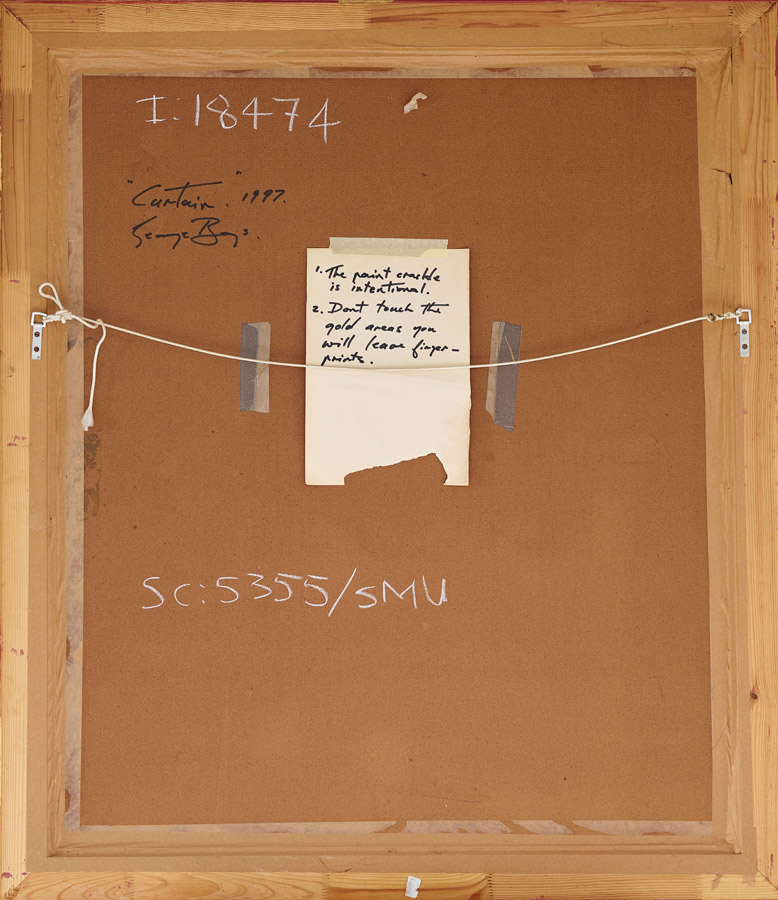 I:18474
"Curtain." 1997.
George Bays.
1. The paint crackle
is intentional.
2. Dont touch the
gold areas you
will leave finger-
prints.
SC:5355/SMU